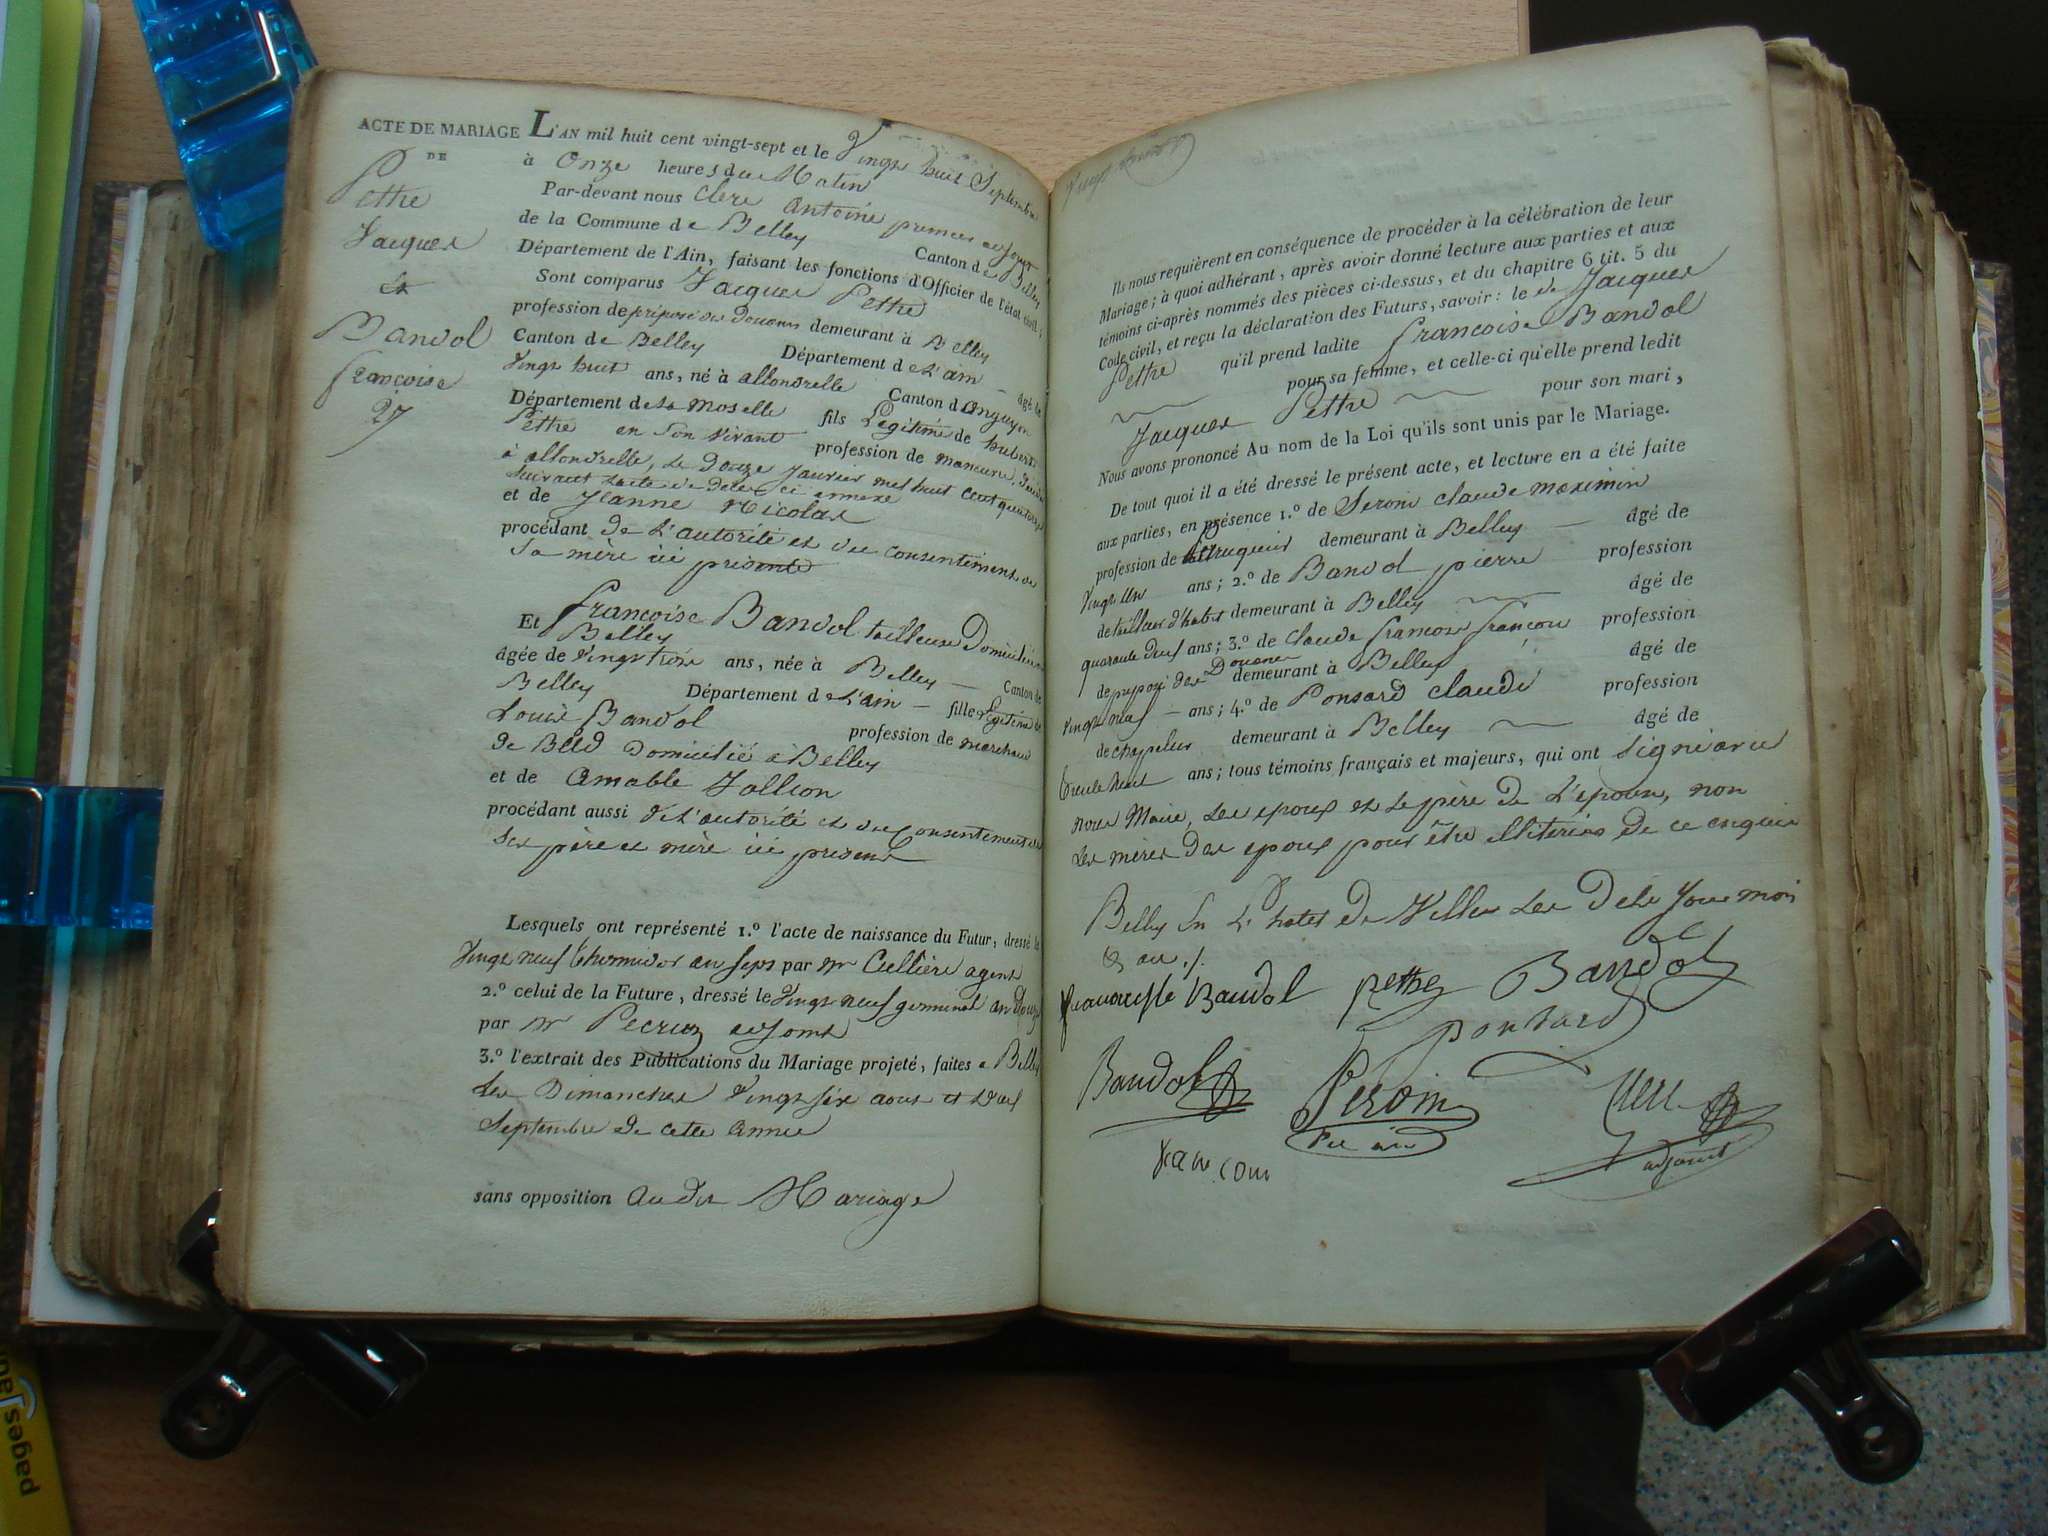 ACTE DE MARIAGE
DE
Pethe
Jacques
et
Bandol
françoise
27
L'AN mil huit cent vingt-sept et le Vingt huit Septembre
à Onze heures du Matin
Par-devant nous Clerc Antoine premier adjoint
de la Commune de Belley Canton de Belley
Département de l'Ain, faisant les fonctions d'Officier de l'état civil,
Sont comparus Jacques Pethe
profession de préposé des Douanes demeurant à Belley
Canton de Belley Département de L'ain âgé de
Vingt huit ans, né à allondrelle Canton de
Département de la Moselle fils Légitime de hubert
Pethe en son vivant profession de manœuvre, décédé
à allondrelle, Le Douze Janvier mil huit Cent quatorze
suivant L'acte de décès ci annexé
et de Jeanne Nicolas
procédant de L'autorité et du consentement de
Sa mère ici présente
Et françoise Bandol tailleuse Domiciliée
Belley
âgée de Vingt trois ans, née à Belley Canton de
Belley Département de L'ain fille Légitime de
Louis Bandol profession de marchand
de Bled Domicilié à Belley
et de Amable Jollion
procédant aussi de L'autorité et du Consentement de
Ses père et mère ici présens
Lesquels ont représenté 1.º l'acte de naissance du Futur, dressé le
Vingt neuf thermidor an sept par Mr Cullière agent
2.º celui de la Future, dressé le Vingt neuf germinal an Douze
par Mr Pecruz adjoint
3.º l'extrait des Publications du Mariage projeté, faites a Belley
Les Dimanches Vingt six aout et Deux
Septembre de cette Année
sans opposition Audit Mariage
Ils nous requièrent en conséquence de procéder à la célébration de leur
Mariage ; à quoi adhérant, après avoir donné lecture aux parties et aux
témoins ci-après nommés des pièces ci-dessus, et du chapitre 6 tit. 5 du
Code civil, et reçu la déclaration des Futurs, savoir : le de Jacques
Pethe qu'il prend ladite françoise Bandol
pour sa femme, et celle-ci qu'elle prend ledit
Jacques Pethe pour son mari,
Nous avons prononcé Au nom de la Loi qu'ils sont unis par le Mariage.
De tout quoi il a été dressé le présent acte, et lecture en a été faite
aux parties, en présence 1.º de Seroin Claude Maximin
profession de Perruquier demeurant à Belley âgé de
Vingt Un ans ; 2.º de Bandol pierre profession
de tailleur d'habits demeurant à Belley âgé de
quarante deux ans ; 3.º de Claude françois françou profession
de préposé des Douanes demeurant à Belley âgé de
Vingt neuf ans ; 4.º de Ponsard Claude profession
de chapelier demeurant à Belley âgé de
trente huit ans ; tous témoins français et majeurs, qui ont Signé avec
nous Maire, Les epoux et Le père de L'epouse, non
Les meres des epoux pour être illitérées de ce enquis
Belley En L'hotel de Ville Les De Le Jour mois
& an ./.
francoise Bandol Pethe Bandol
Ponsard
Bandol Seroin Clerc
adjoint